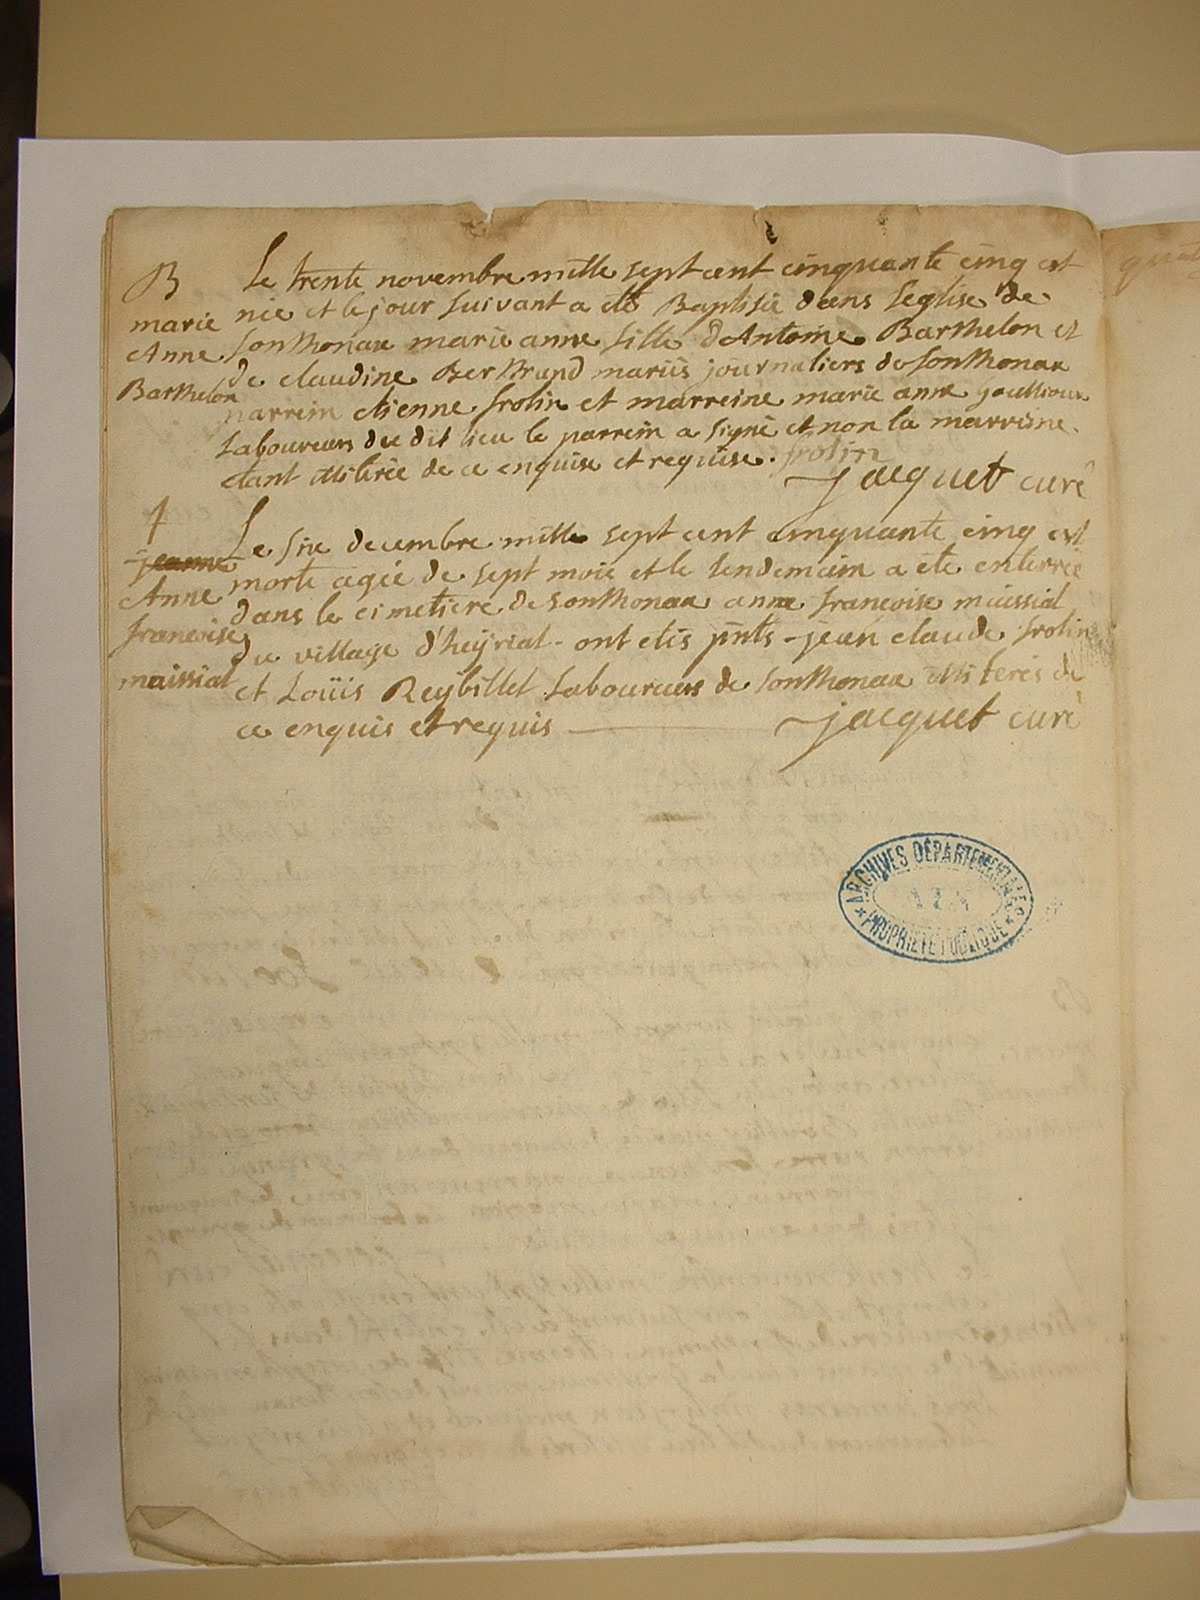 B
marie
Anne
Barthelon
Le trente novembre mille sept cent cinquante cinq est
neé et le jour suivant a eté Baptisée dans l'eglise de
sonthonax marie anne fille d'Antoine Barthelon et
de claudine Berthrand mariés journaliers de sonthonax
parrein etienne frolin et marreine marie anne
laboureurs du dit lieu le parrein a signé et non la marreine
etant illiterée de ce enquise et requise. frolin
jacquet curé
†
jeanne
Anne
francoise
maissiat
Le six decembre mille sept cent cinquante cinq est
morte ageé de sept mois et le lendemain a eté enterreé
dans le cimetiere de sonthonax anne francoise maissiat
du village d'heyriat - ont etés pnts - jean claude frolin
et Loüis Reybillet laboureurs de sonthonax illiterés de
ce enquis et requis jacquet curé
ARCHIVES DÉPARTEMENTALES
PROPRIÉTÉ PUBLIQUE